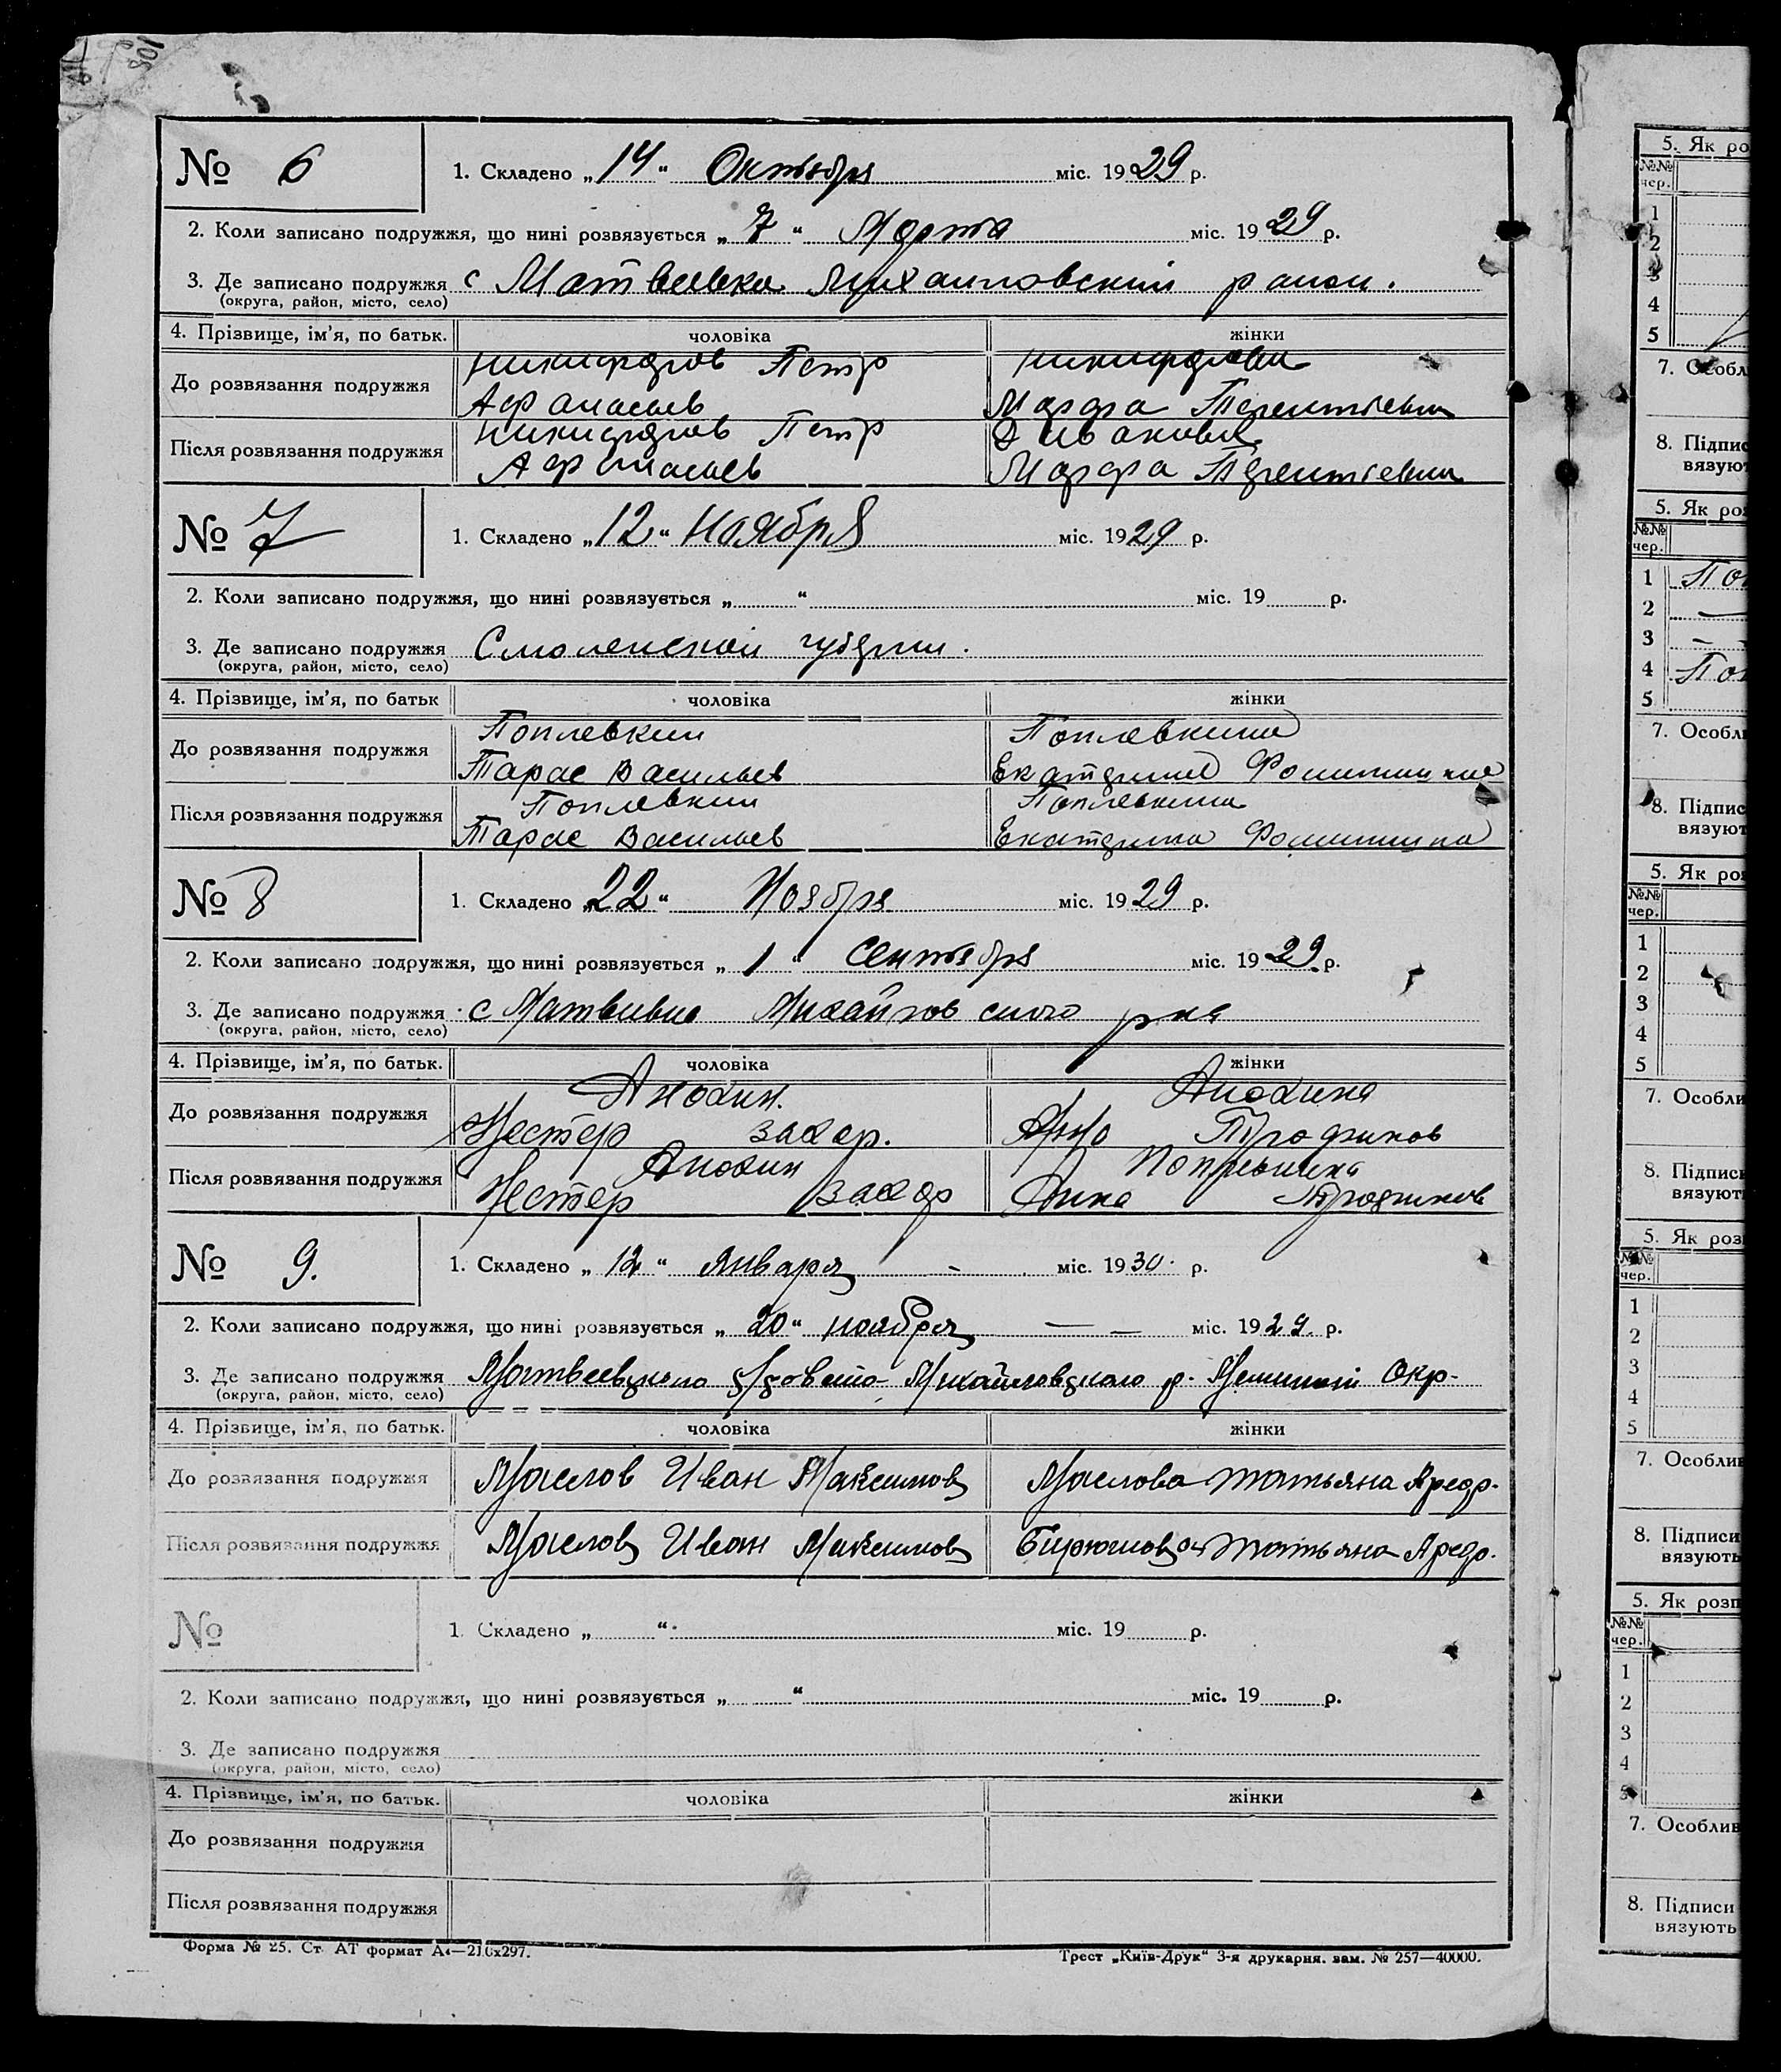 108
№ 6
1. Складено „14“ Октября міс. 1929 р.
2. Коли записано подружжя, що нині розвязується „7“ Марта міс. 1929 р.
3. Де записано подружжя с Матвеевка Михаиловский раион.
(округа, район, місто, село)
4. Прізвище, ім’я, по батьк. чоловіка жінки
Никифоров Петр Никифорова
До розвязання подружжя
Афанасьев Марфа Терентіевна
Никифоров Петр
Після розвязання подружжя
Афанасьев Марфа Терентіевна
№ 7
1. Складено „12“ Ноября міс. 1929 р.
2. Коли записано подружжя, що нині розвязується „ “ міс. 19 р.
3. Де записано подружжя Смоленской губернии.
(округа, район, місто, село)
4. Прізвище, ім’я, по батьк чоловіка жінки
Поплевкин Поплевкина
До розвязання подружжя
Тарас Васильев Екатерина
Поплевкин Поплевкина
Після розвязання подружжя
Тарас Васильев Екатерина
№ 8
1. Складено „22“ Ноября міс. 1929 р.
2. Коли записано подружжя, що нині розвязується „1“ Сентября міс. 1929 р.
3. Де записано подружжя с Михайловского р на
(округа, район, місто, село)
4. Прізвище, ім’я, по батьк. чоловіка жінки
Анохин. Анохина
До розвязання подружжя
Нестер Захар. Анна Трофимов
Анохин
Після розвязання подружжя
Нестер Захар Анна Трофимов
№ 9.
1. Складено „12“ Января міс. 1930. р.
2. Коли записано подружжя, що нині розвязується „20“ ноября — — міс. 1929. р.
3. Де записано подружжя Матвеевского Михайловского р. Окр.
(округа, район, місто, село)
4. Прізвище, ім’я, по батьк. чоловіка жінки
До розвязання подружжя Маслов Иван Максимов Маслова Татьяна
Після розвязання подружжя Маслов Иван Максимов Бирюкова Татьяна
№
1. Складено „ “ міс. 19 р.
2. Коли записано подружжя, що нині розвязується „ “ міс. 19 р.
3. Де записано подружжя
(округа, район, місто, село)
4. Прізвище, ім’я, по батьк. чоловіка жінки
До розвязання подружжя
Після розвязання подружжя
Форма № 25. Ст. АТ формат А4—210х297.
Трест „Київ-Друк“ 3-я друкарня. зам. № 257—40000.
5. Як ро
№№
чер.
1
2
3
4
5
7. Особл
8. Підпис
вязуют
5. Як роз
№№
чер.
1 По
2 —
3 —
4 Поп
5
7. Особл
8. Підпис
вязуют
5. Як роз
№№
чер.
1
2
3
4
5
7. Особли
8. Підпис
вязуют
5. Як роз
№№
чер.
1
2
3
4
5
7. Особлив
8. Підписи
вязують
5. Як розп
№№
чер.
1
2
3
4
5
7. Особлив
8. Підписи
вязують